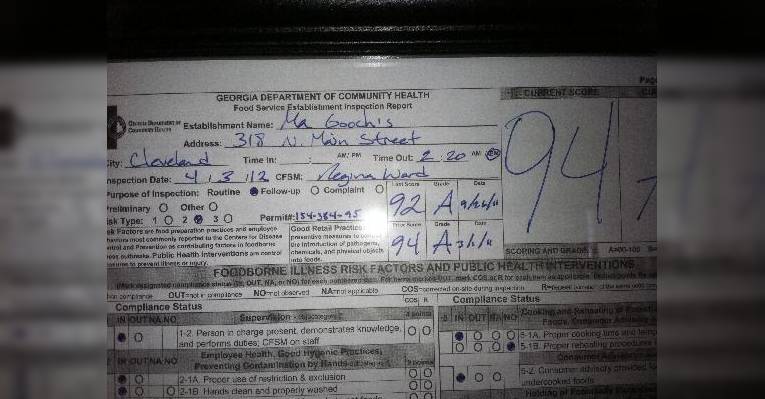 Page
GEORGIA DEPARTMENT OF COMMUNITY HEALTH
Food Service Establishment Inspection Report
CURRENT SCORE
Establishment Name: Ma Gooch's
Address: 318 N. Main Street
City: Cleveland Time In: : AM/ PM Time Out: 2 : 20 AM PM
Inspection Date: 4 / 3 / 12 CFSM: Regina Ward
94
Purpose of Inspection: Routine Follow-up Complaint
Last Score Grade Date
Preliminary Other
92 A
Risk Type: 1 2 3 Permit#:
Prior Score Grade Date
94 A
Risk Factors are food preparation practices and employee
behaviors most commonly reported to the Centers for Disease
Control and Prevention as contributing factors in foodborne
illness outbreaks. Public Health Interventions are control
measures to prevent illness or injury.
Good Retail Practices
preventive measures to
the introduction of pathogens,
chemicals, and physical objects
into foods.
SCORING AND GRADING: A=90-100
FOODBORNE ILLNESS RISK FACTORS AND PUBLIC HEALTH INTERVENTIONS
OUT=not in compliance NO=not observed NA=not applicable COS=corrected on-site during inspection
Compliance Status COS R
Compliance Status
IN OUT NA NO Supervision
1-2. Person in charge present, demonstrates knowledge,
and performs duties; CFSM on staff
IN OUT NA NO Employee Health, Good Hygienic Practices,
Preventing Contamination by Hands
2-1A. Proper use of restriction & exclusion
2-1B. Hands clean and properly washed
IN OUT NA NO Cooking and Reheating of
5-1A. Proper cooking time and
5-1B. Proper reheating procedures
Consumer Advisory
5-2. Consumer advisory provided
undercooked foods